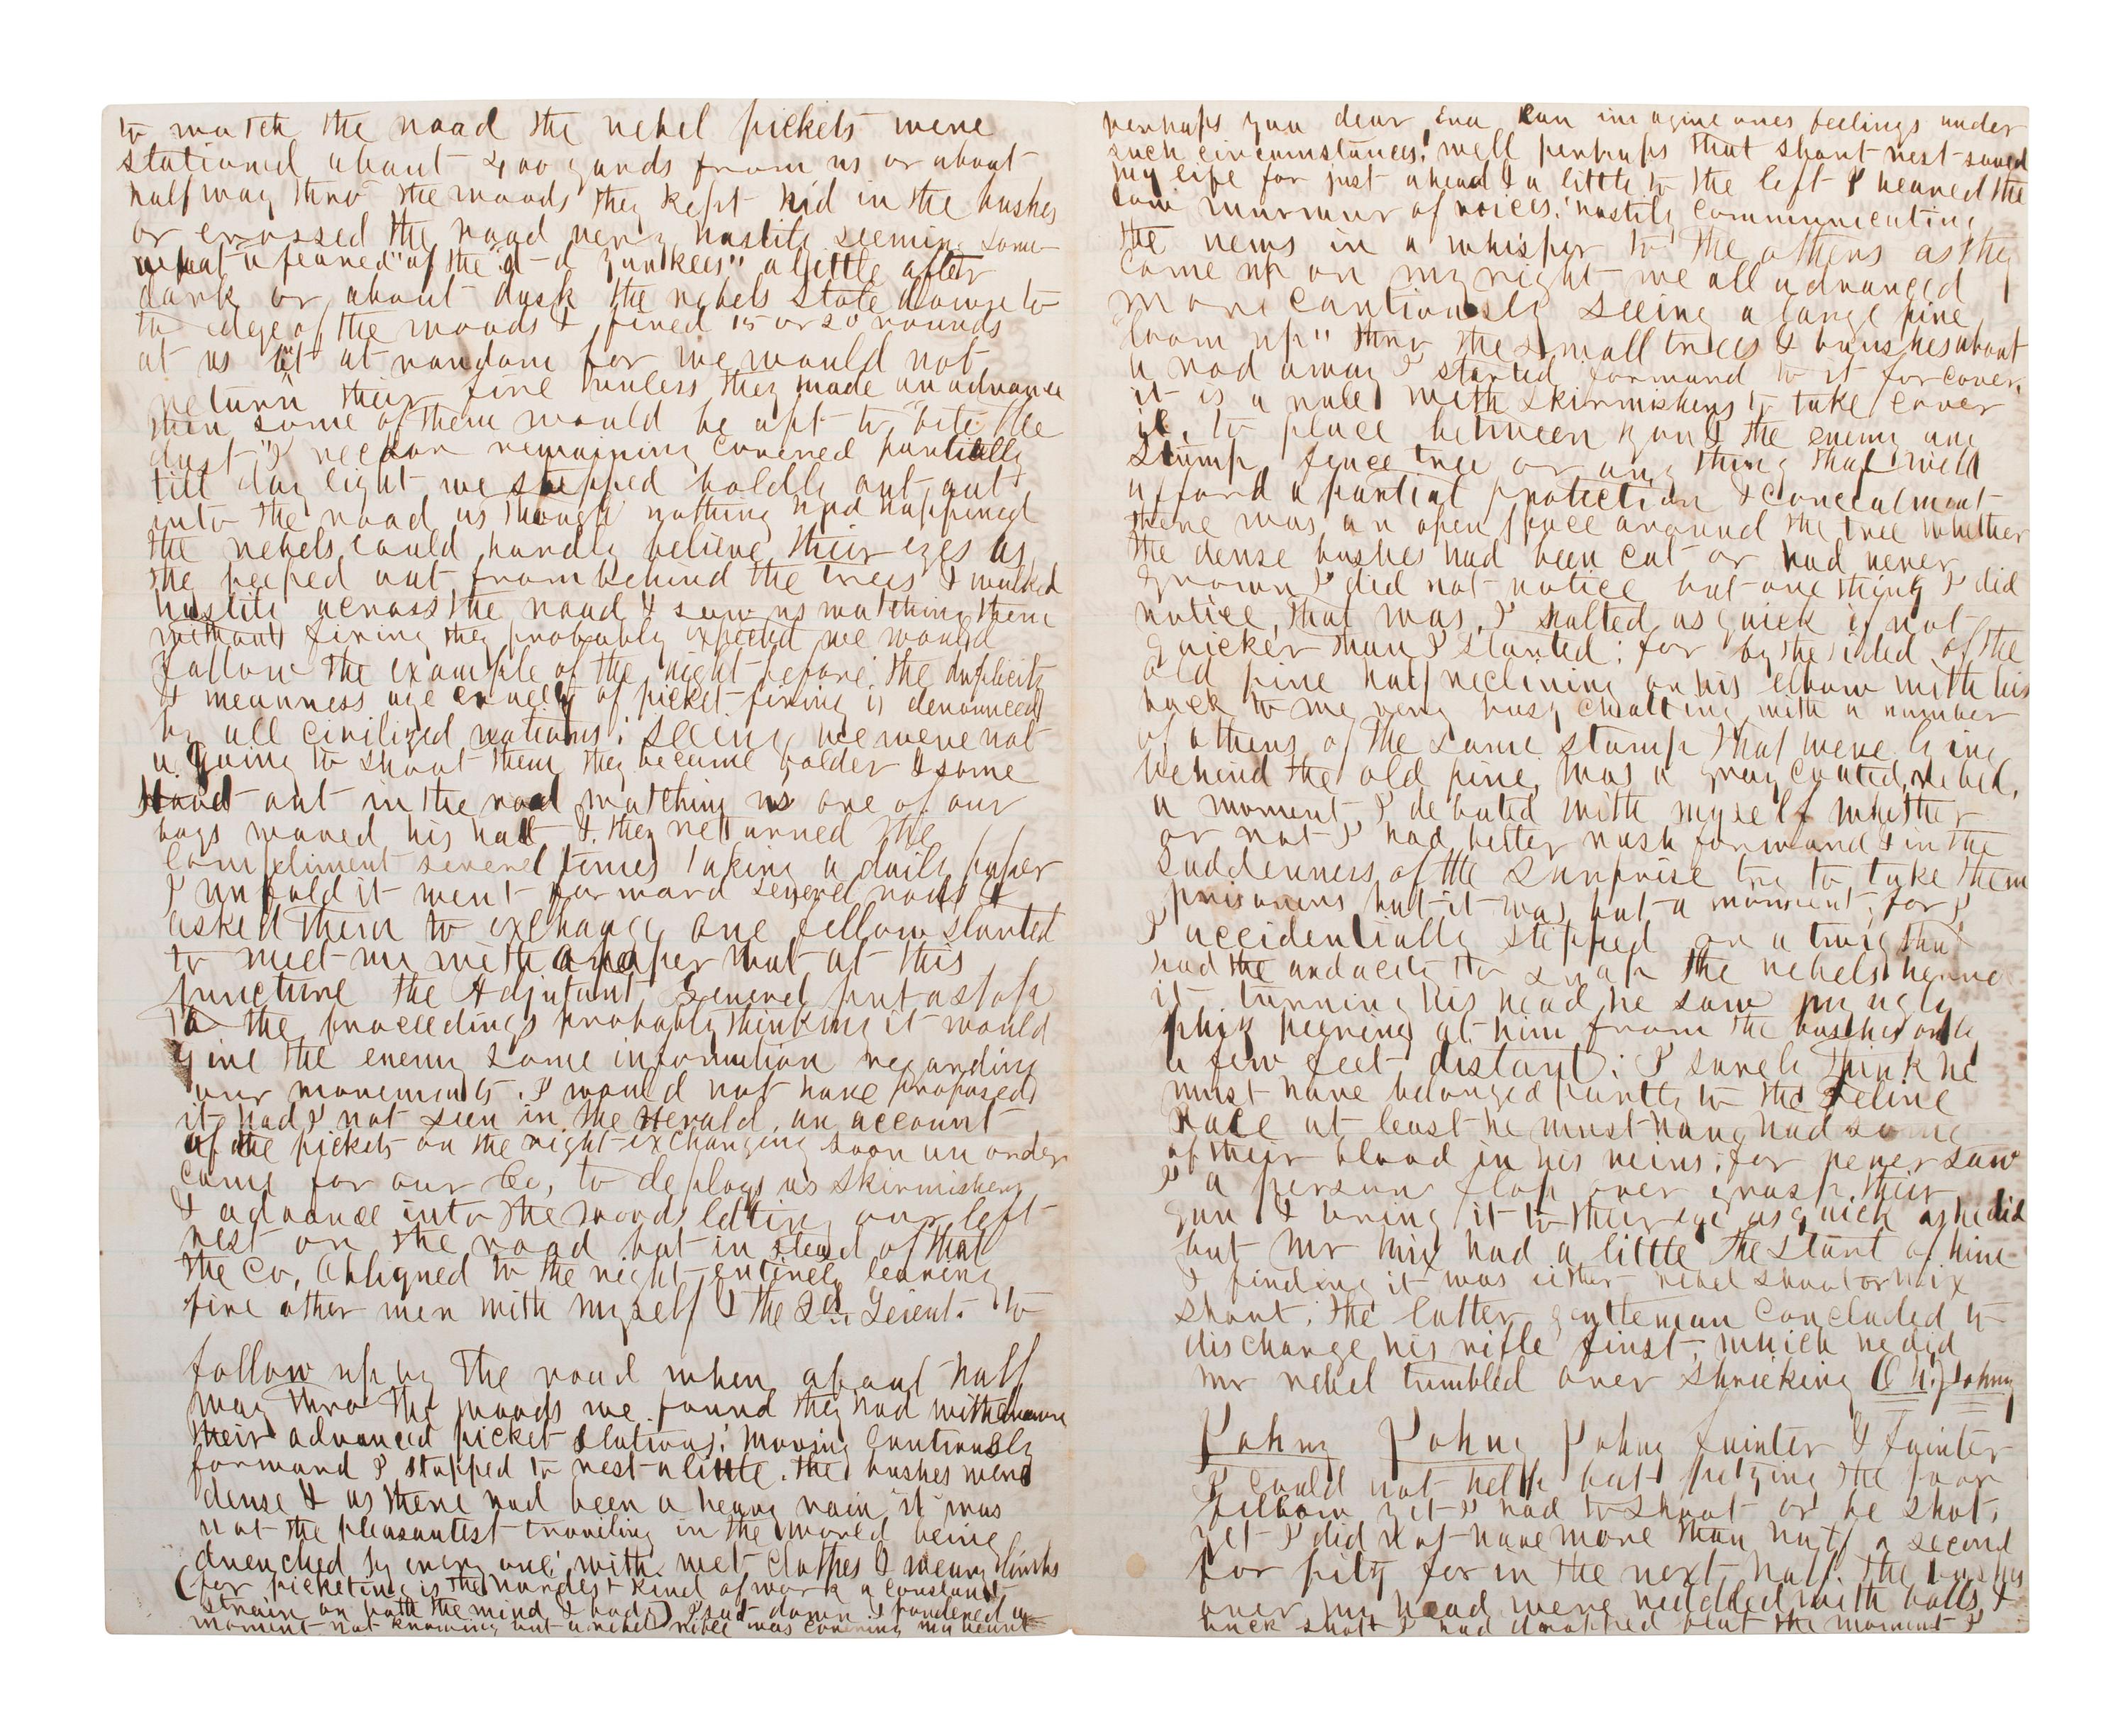 to watch the road the rebel pickets were
stationed about 400 yards from us or about
half way thro the woods they kept hid in the bushes
or crossed the road very hastily seeming some-
what afeared "of the d-d yankees" a little after
dark or about dusk the rebels stole down to
the edge of the woods & fired 15 or 20 rounds
at us at random for we would not
return their fire unless they made an advance
then some of them would be apt to "bite the
dust" I reckon remaining covered partially
till day light we stepped boldly out out
into the road as though nothing had happened
the rebels could hardly believe their eyes as
the peeped out from behind the trees & walked
hastily across the road & saw us watching them
without firing they probably expected we would
follow the example of the night before; the duplicity
& meanness aye cruelty of picket-firing is denounced
by all civilized nations; seeing we were not
a going to shoot them they became bolder & some
stood out in the road watching us one of our
boys waved his hat & they returned the
compliment several times taking a daily paper
I unfold it went forward several rods &
asked them to exchange one fellow started
to meet me with a paper but at this
juncture the Adjutant General put a stop
to the proceedings probably thinking it would
give the enemy some information regarding
our movements. I would not have proposed
it had I not seen in the Herald, an account
of the pickets on the right exchanging soon an order
came for our Co, to deploy as skirmishers
& advance into the woods letting our left
rest on the road but in stead of that
the Co, obliqued to the right entirely leaving
five other men with myself & the 2d Lieut. to
follow up by the road when about half
way thro the woods we found they had withdrawn
their advanced picket stations; moving cautiously
forward I stopped to rest a little. the bushes were
dense & as there had been a heavy rain it was
not the pleasantest traveling in the world being
drenched by every one; with wet clothes & weary limbs
(for picketing is the hardest kind of work a constant
strain on both the mind & body) I sat down & pondered a
moment not knowing but a rebel rifle was covering my heart
perhaps you dear can imagine ones feelings under
such circumstances; well perhaps that short rest saved
my life for just ahead & a little to the left I heared the
low murmur of voices; hastily communicating
the news in a whisper to the others as they
come up on my right we all advanced
more cautiously seeing a large pine
"loom up" thro the small trees & branches about
a rod away I started forward to it for cover,
it is a rule with skirmishers to take cover
ie, to place between you & the enemy any
stump, fence tree or any thing that will
afford a partial protection & concealment
there was an open space around the tree whether
the dense bushes had been cut or had never
grown I did not notice but one thing I did
notice, that was, I halted as quick if not
quicker than I started; for by the side of the
old pine half reclining on his elbow with his
back to me very busy chatting with a number
of others of the same stamp that were lying
behind the old pine, was a gray coated rebel,
a moment I debated with myself whether
or not I had better rush forward & in the
suddenness of the surprise try to take them
prisoners but it was but a moment, for I
I accidentially stepped on a twig that
had the audacity to snap the rebels heard
it turning his head he saw my ugly
phiz peering at him from the bushes only
a few feet distant; I surely think he
must have belonged partly to the feline
race at least he must have had some
of their blood in his veins; for never saw
I a person flop over grasp their
gun & bring it to their eye as quick as he did
but Mr Mix had a little the start of him
I finding it was either rebel shoot or Mix
shoot. the latter gentleman concluded to
discharge his rifle first; which he did
Mr rebel tumbled over shrieking Oh! Johny
Johny Johny Johny fainter & fainter
I could not help but pitying the poor
fellow yet I had to shoot or be shot,
yet I did not have more than half a second
for pity for in the next half the bushes
over my head were riddled with balls &
buck shot I had dropped flat the moment I